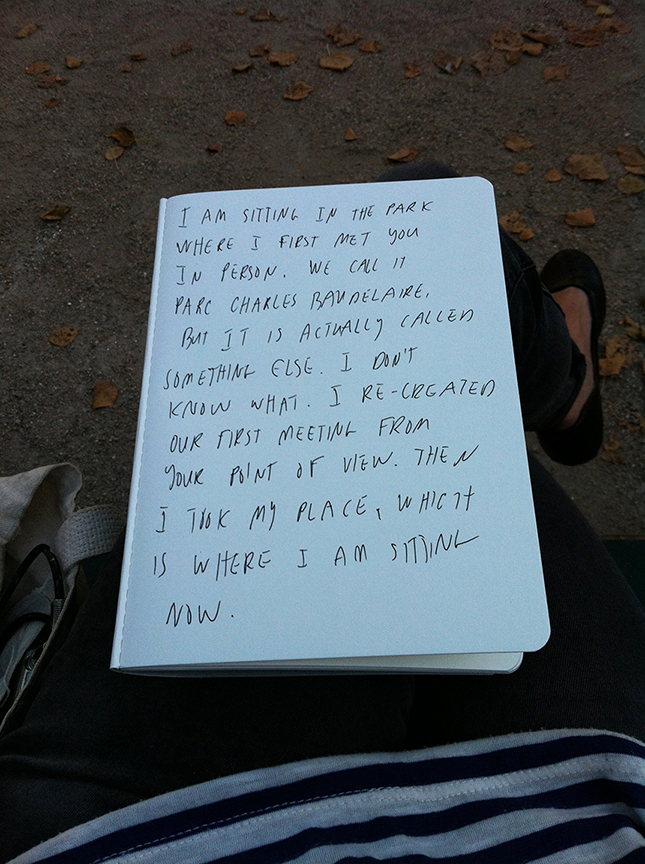 I AM SITTING IN THE PARK
WHERE I FIRST MET YOU
IN PERSON. WE CALL IT
PARC CHARLES BAUDELAIRE,
BUT IT IS ACTUALLY CALLED
SOMETHING ELSE. I DON'T
KNOW WHAT. I RE-CREATED
OUR FIRST MEETING FROM
YOUR POINT OF VIEW. THEN
I TOOK MY PLACE, WHICH
IS WHERE I AM SITTING
NOW.